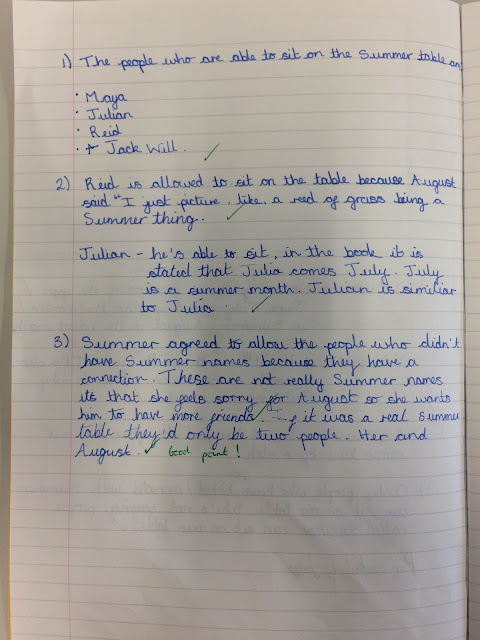 1) The people who are able to sit on the Summer table are
· Maya
· Julian
· Reid
· + Jack Will.
2) Reid is allowed to sit on the table because August
said "I just picture, like, a reed of grass being a
Summer thing.
Julian - he's able to sit, in the book it is
stated that Julia comes July. July
is a summer month. Julian is similiar
to Julia.
3) Summer agreed to allow the people who didn't
have Summer names because they have a
connection. These are not really Summer names
its that she feels sorry for August so she wants
him to have more friends. If it was a real Summer
table they'd only be two people. Her and
August. Good point!